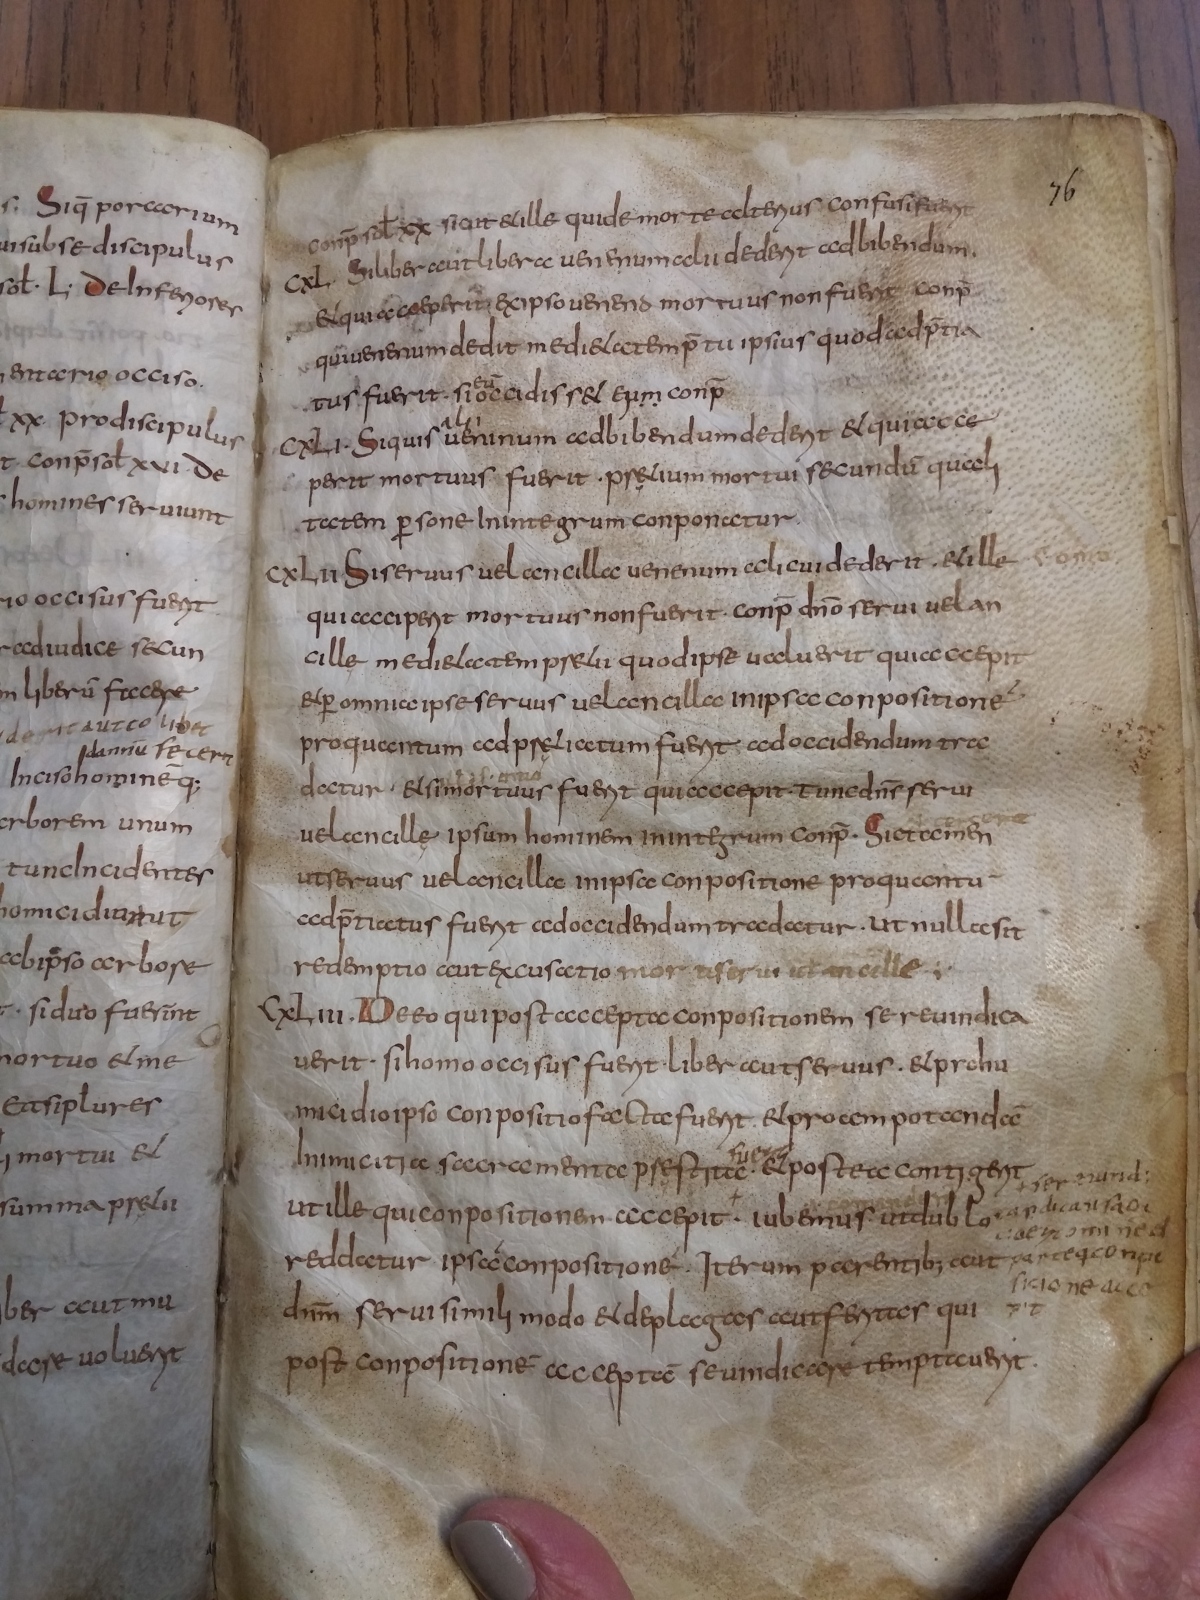 s. Siq̄ porcarium
uisub se discipulus
sol̄. L. De Inferiores
entario occiso.
xx pro discipulus
t. conp̄ sol̄ xvi. De
homines seruiunt
rio occisus fuerit
r ad iudice secun
m liberū facere
aut eo libet
Inciso homineq;
arborem unum
tunc Incidentes
homicidiu
ab ipso arbose
t. si duo fuerint
mortuo et me
Et si plures
i mortui et
summa pretii
iber aut mu
dare uoluerit
76
conp̄ sol̄ xx sicut et ille qui de morte alterius confusi fuerit
CXL. Si liber aut libera uenenum alii dederit ad bibendum.
et qui acceperit ex ipso ueneno mortuus non fuerit conp̄
qui uenenum dedit medietatem p̄tii ipsius quod adp̄tia
tus fuerit. si eū occidisset eum conp̄
CXLI. Siquis uenenum ad bibendum dederit et qui acce
perit mortuus fuerit. pretium mortui secundū quali
tatem p̄sone In integrum conponatur.
CXLII Si seruus uel ancilla uenenum alicui dederit. et ille
qui acciperit mortuus non fuerit. conp̄ dn̄o serui uel an
cille medietatem pretii quod ipse ualuerit qui accepit
et p̄ omnia ipse seruus uel ancilla in ipsa conpositionē
pro quantum adpretiatum fuerit ad occidendum tra
datur. et si mortuus fuerit qui accepit. tunc dn̄s serui
uel ancille ipsum hominem in integrum conp̄. Sic tamen
ut seruus uel ancilla in ipsa conpositione pro quantū
adp̄tiatus fuerit ad occidendum tradatur. ut nulla sit
redemptio aut excusatio mortis serui uel ancille
CXLIII. De eo qui post accepta conpositionem se reuindica
uerit. si homo occisus fuerit liber aut seruus. et pro hu
micidio ipso conpositio facta fuerit. et pro amputandā
Inimicitia sacramenta prestita fuerit. et postea contigerit
ut ille qui conpositionem accepit. iubemus ut dublo
reddatur ipsā conpositionē. Iterum parentib; aut
dn̄m serui simili modo et de plagas aut feritas qui
post conpositionē acceptā se uindicare temptauerit.